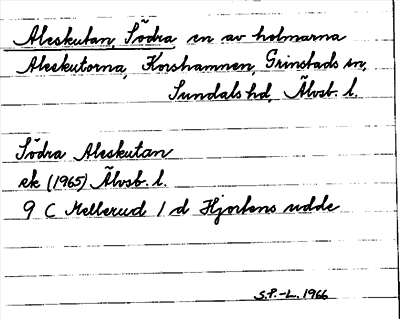 Aleskutan, Södra, en av holmarna
Aleskutorna, Korshamnen, Grinstads sn,
Sundals hd, Älvsb. l.
Södra Aleskutan
ek (1965) Älvsb. l.
9 C Mellerud 1 d Hjortens udde
S.P.-L. 1966